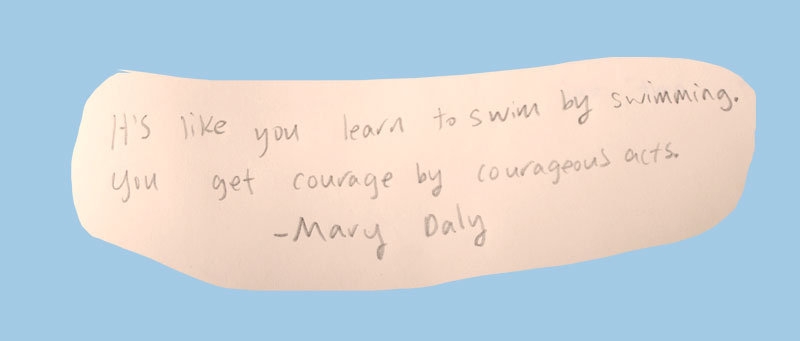 It's like you learn to swim by swimming.
You get courage by courageous acts.
-Mary Daly